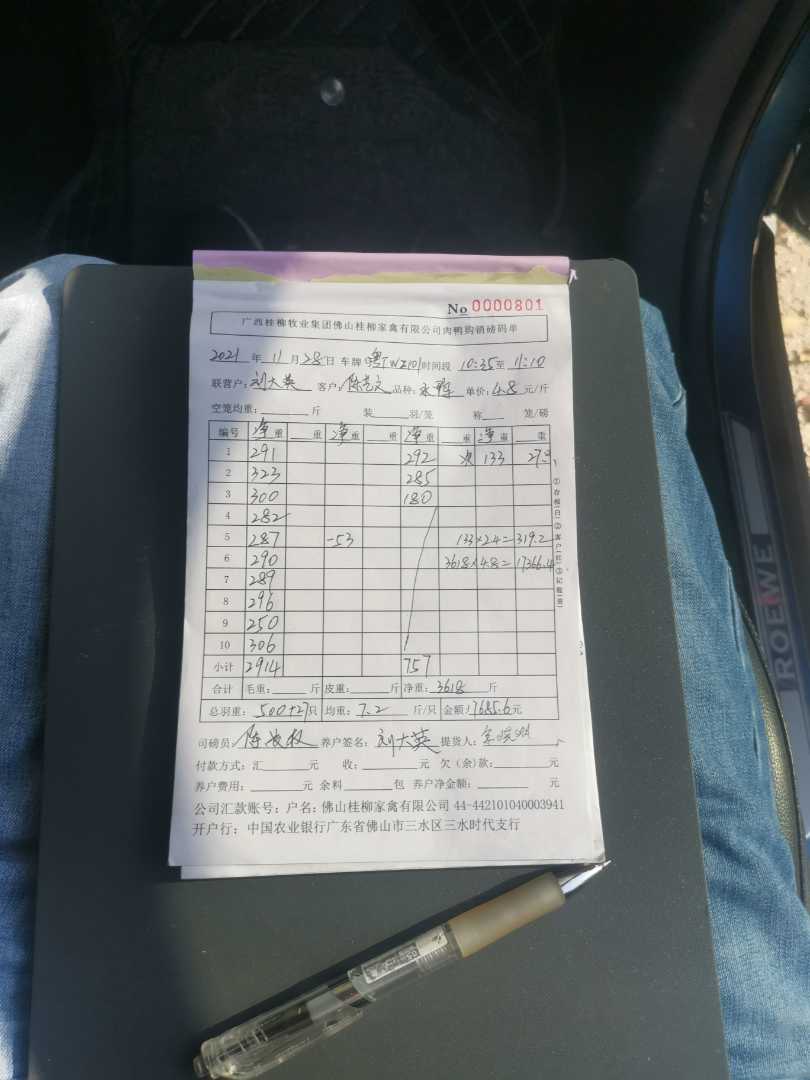 No 0000801
广西桂柳牧业集团佛山桂柳家禽有限公司肉鸭购销磅码单
2021 年 11 月 28 日 车牌 粤 时间段 10:35 至 11:10
联营户: 刘大英 客户: 陈 文 品种: 单价: 4.8 元/斤
空笼均重: 斤 装 羽/笼 称 笼/磅
编号 净重 重 净重 重 净重 重 净重 重
1 291 292 次 133 27只
2 323 285
3 300 180
4 282
5 287 -53 133×2.4= 319.2
6 290 3618×4.8= 17366.4
7 289
8 296
9 250
10 306
小计 2914 757
合计 毛重: 斤 皮重: 斤 净重: 3618 斤
总羽重: 500+27 只 均重: 7.2 斤/只 金额: 17685.6 元
司磅员: 陈 养户签名: 刘大英 提货人:
付款方式: 汇 元 收: 元 欠(余)款: 元
养户费用: 元 余料 包 养户净金额: 元
公司汇款账号: 户名: 佛山桂柳家禽有限公司 44-442101040003941
开户行: 中国农业银行广东省佛山市三水区三水时代支行
①存根(白)②客户(红)③记账(黄)
ROEWE